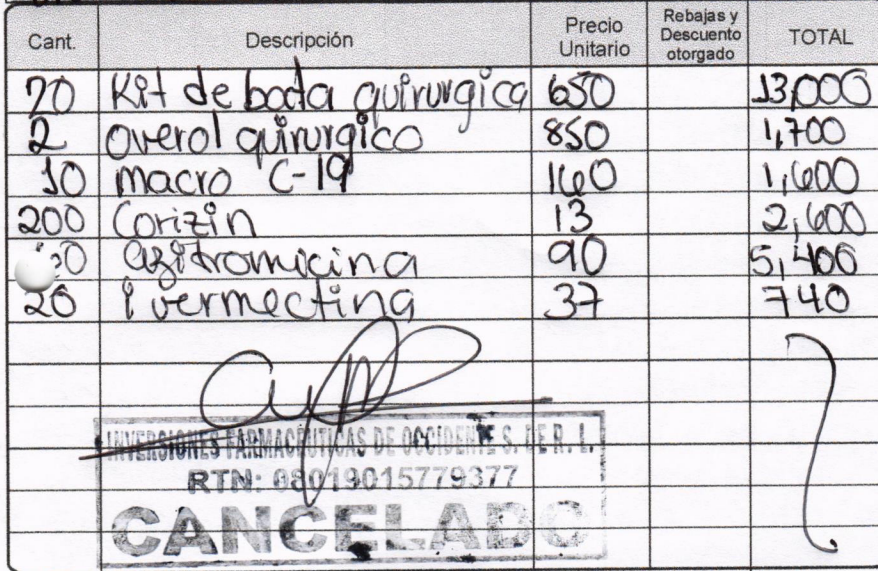 Cant. Descripción Precio Unitario Rebajas y Descuento otorgado TOTAL
20 Kit de bata quirurgica 650 13,000
2 overol quirurgico 850 1,700
10 macro C-19 160 1,600
200 Corizin 13 2,600
azitromicina 90 5,400
20 ivermectina 37 740
INVERSIONES FARMACEUTICAS DE OCCIDENTE S. DE R. L.
RTN: 08019015779377
CANCELADO